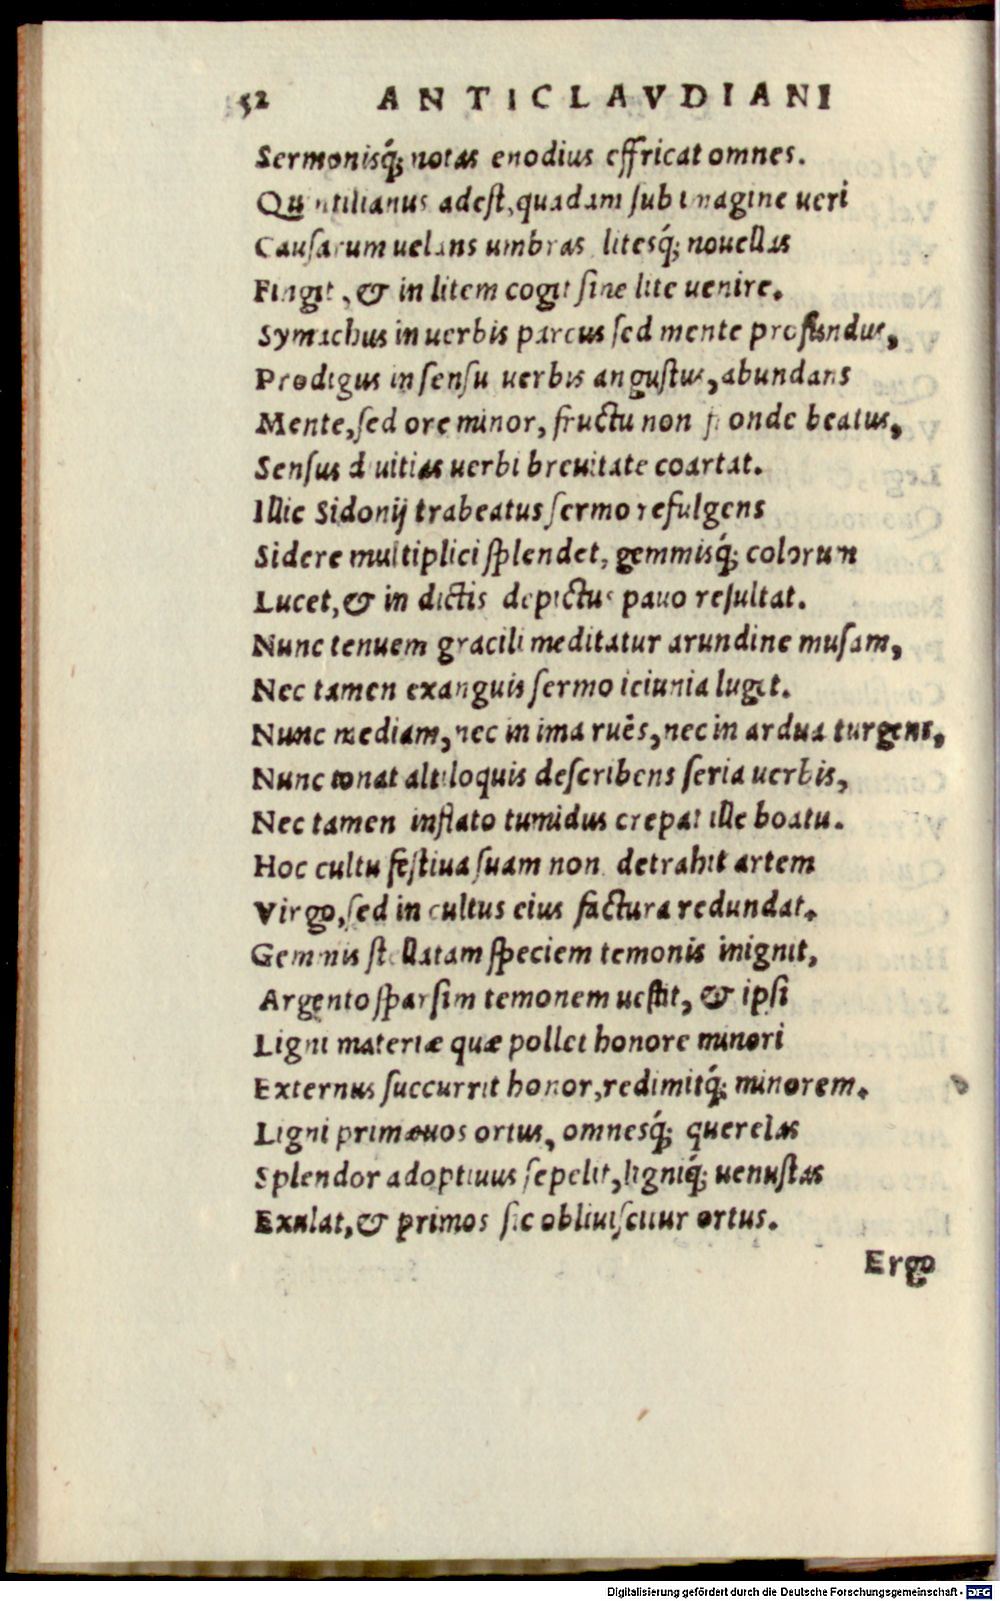 52 ANTICLAVDIANI
Sermonisq́; notas enodius effricat omnes.
Quintilianus adeſt, quadam ſub imagine ueri
Cauſarum uelans umbras litesq́; nouellas
Fingit, & in litem cogit ſine lite uenire.
Symachus in uerbis parcus ſed mente profundus,
Prodigus in ſenſu uerbis anguſtus, abundans
Mente, ſed ore minor, fructu non fronde beatus,
Senſus diuitias uerbi breuitate coartat.
Illic Sidonij trabeatus ſermo refulgens
Sidere multiplici ſplendet, gemmisq́; colorum
Lucet, & in dictis depictus pauo reſultat.
Nunc tenuem gracili meditatur arundine muſam,
Nec tamen exanguis ſermo ieiunia luget.
Nunc mediam, nec in ima ruẽs, nec in ardua turgens,
Nunc tonat altiloquis deſcribens ſeria uerbis,
Nec tamen inflato tumidus crepat ille boatu.
Hoc cultu feſtiua ſuam non detrahit artem
Virgo, ſed in cultus eius factura redundat.
Gemmis ſtellatam ſpeciem temonis inignit,
Argento ſparſim temonem ueſtit, & ipſi
Ligni materiæ quæ pollet honore minori
Externus ſuccurrit honor, redimitq́; minorem.
Ligni primæuos ortus, omnesq́; querelas
Splendor adoptiuus ſepelit, ligniq́; uenuſtas
Exulat, & primos ſic obliuiſcitur ortus.
Ergo
Digitalisierung gefördert durch die Deutsche Forschungsgemeinschaft - DFG